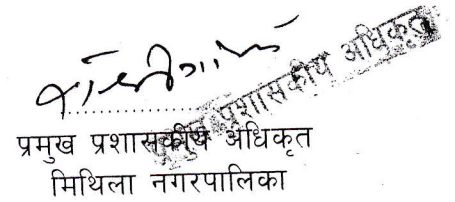 प्रमुख प्रशासकीय अधिकृत
प्रमुख प्रशासकीय अधिकृत
मिथिला नगरपालिका